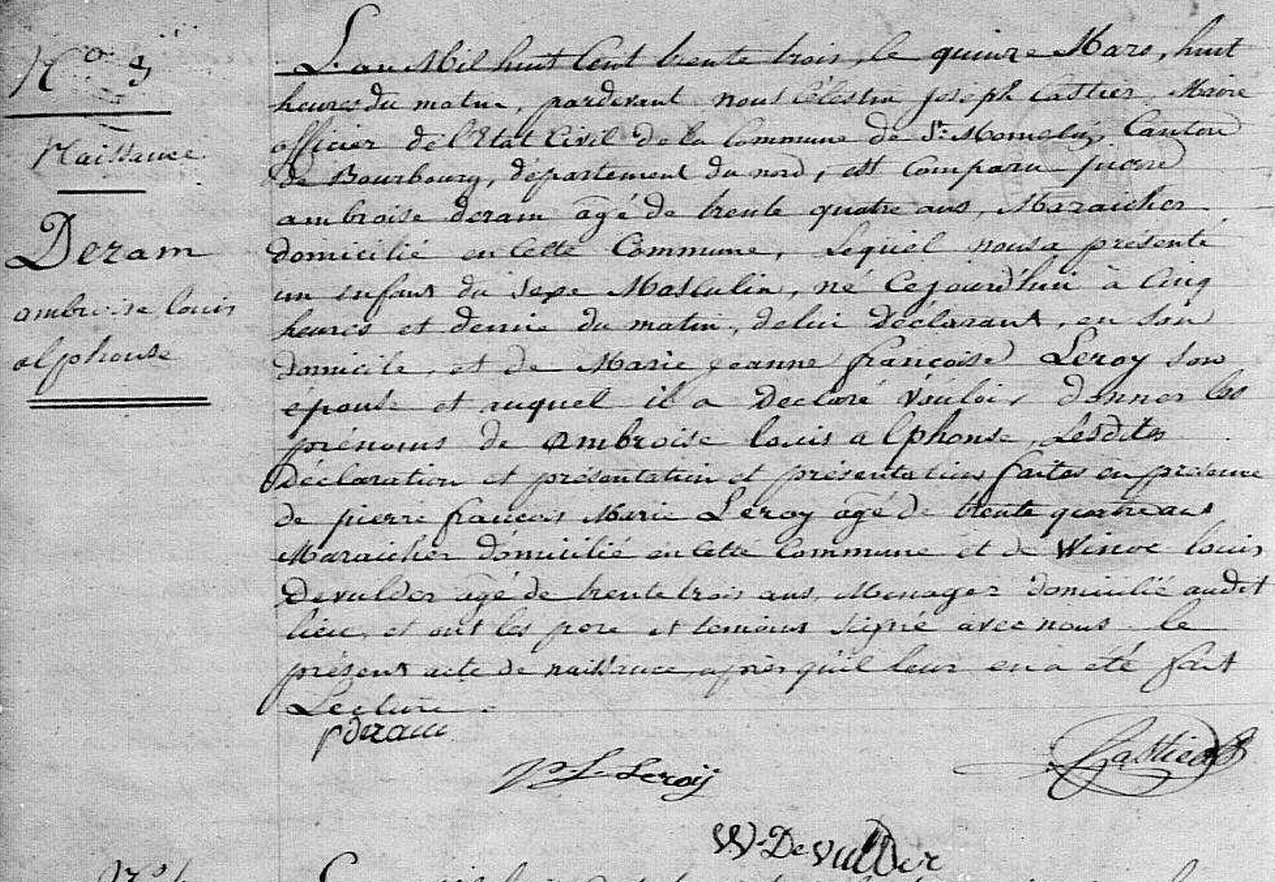 N.o 3
Naissance
Deram
ambroise louis
alphonse
L'an Mil huit Cent trente trois, le quinze Mars, huit
heures du matin, pardevant nous Célestin joseph Castier, Maire
officier de l'Etat Civil de la Commune de St. Momelin, Canton
de Bourbourg, département du nord, est Comparu pierre
ambroise deram âgé de trente quatre ans, Maraicher
domicilié en Cette Commune, Lequel nous a présenté
un enfant du Sexe Masculin, né Cejourd'hui à Cinq
heures et demie du matin, de lui Déclarant, en Son
domicile, et de Marie jeanne françoise Leroy Son
épouse et auquel il a Declaré Vouloir donner les
prénoms de ambroise louis alphonse, Lesdites
Déclaration et présentation et présentation faites en presence
de pierre francois Marie Leroy âgé de trente quatre ans
Maraicher domicilié en Cette Commune et de Winoc louis
Devulder âgé de trente trois ans, Menager domicilié audit
lieu, et ont les pere et temoins Signé avec nous le
présent acte de naissance après qu'il leur en a été fait
Lecture.
p deram
P f. Leroy
Castier
W. Devulder